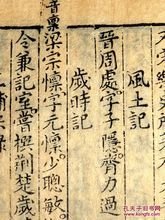 風土記
晉周處字子隱膂力過
歲時記
音稟
梁宗懍字元懍少聰敏
令兼記室嘗撰荊楚歲